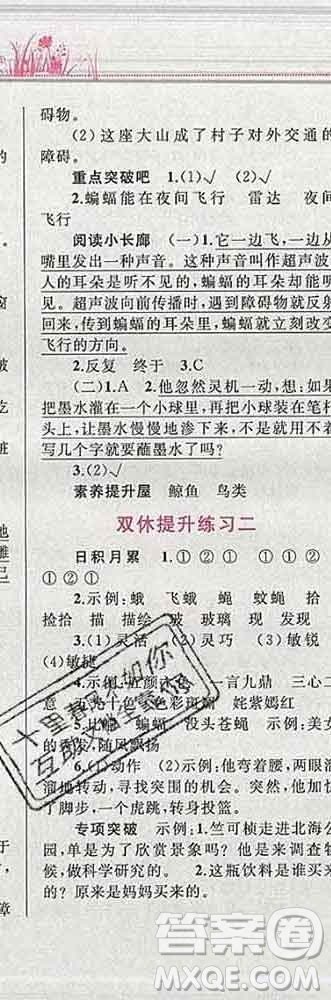 碍物。
(2)这座大山成了村子对外交通的
障碍。
重点突破吧 1.(1)√ (2)√
2.蝙蝠能在夜间飞行 雷达 夜间
飞行
阅读小长廊 (一)1.它一边飞,一边从
嘴里发出一种声音。这种声音叫作超声波
人的耳朵是听不见的,蝙蝠的耳朵却能听
见。超声波向前传播时,遇到障碍物就反射
回来,传到蝙蝠的耳朵里,蝙蝠就立刻改变
飞行的方向。
2.反复 终于 3.C
(二)1.A 2.他忽然灵机一动,想:如果
把墨水灌在一个小球里,再把小球装在笔杆
头上,让墨水慢慢地渗下来,不
写几个字就要蘸墨水了吗?
3.(2)√
素养提升屋 鲸鱼 鸟类
双休提升练习二
日积月累 1.①②① ①①②
①②①
2.示例:蛾 飞蛾 蝇 蚊蝇 拾
捡拾 描 描绘 玻 玻璃 现 发现
3.(1)灵活 (2)灵巧 (3)敏锐
(4)敏捷
4.示例: 一言九鼎 三心二
意 五光十色 色彩斑斓 姹紫嫣红
5. 蝙蝠 没头苍蝇 示例:美
的 随风飘扬
6.(1)动作 (2)示例:他弯着腰,两眼溜
溜地转动,寻找突围的机会。
了脚步,一个虎跳,转身投篮。
专项突破 示例:1.竺可桢走进北海公
园,单是为了欣赏景象吗?他是
候,做科学研究的。 2.这瓶饮料是谁买来
的?原来是妈妈买来的。
十里春风不如你
互助文明学霸你
答案圈
MXQE.COM